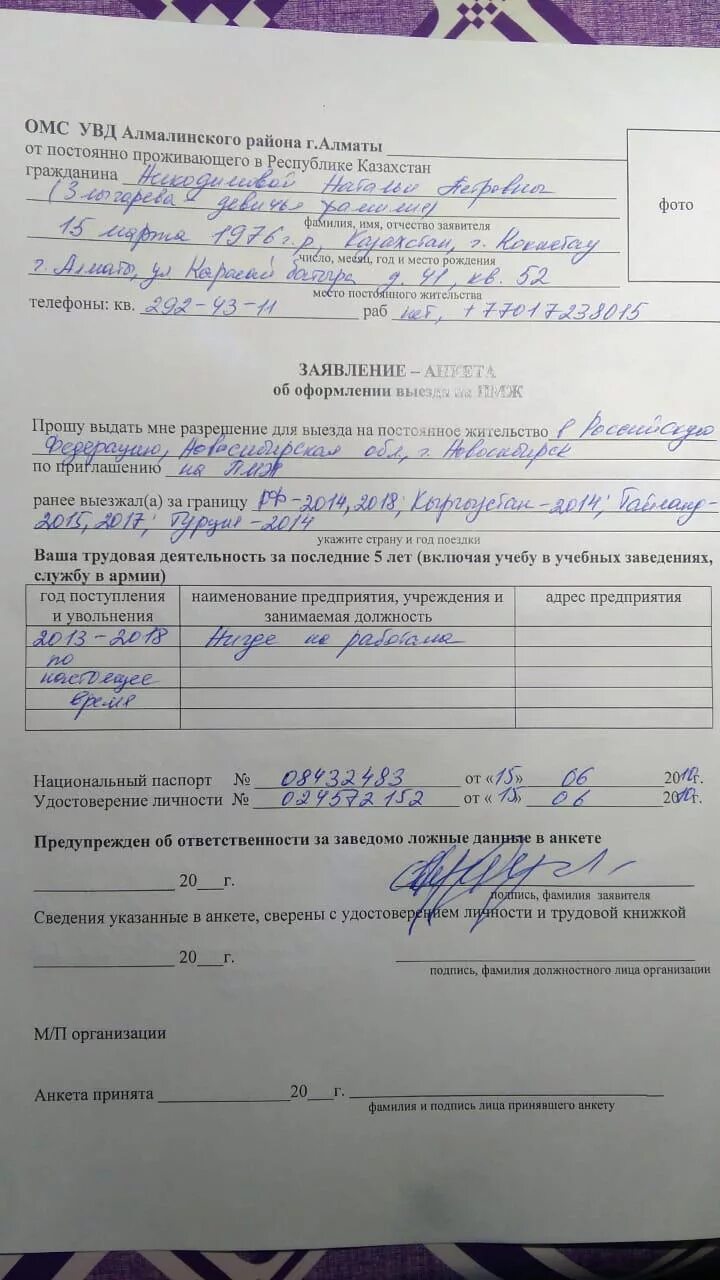 ОМС УВД Алмалинского района г.Алматы
от постоянно проживающего в Республике Казахстан
гражданина Никодимовой Натальи Петровны
(Злыгарева - девичья фамилия)
фамилия, имя, отчество заявителя
15 марта 1976 г.р, Казахстан, г. Кокчетау
число, месяц, год и место рождения
г. Алматы, ул Карасай батыра д. 41, кв. 52
место постоянного жительства
телефоны: кв. 292-43-11 раб нет, +77017238015
фото
ЗАЯВЛЕНИЕ – АНКЕТА
об оформлении выезда на ПМЖ
Прошу выдать мне разрешение для выезда на постоянное жительство в Российскую
Федерацию, Новосибирская обл, г. Новосибирск
по приглашению на ПМЖ
ранее выезжал(а) за границу РФ-2014, 2018; Кыргызстан-2014; Тайланд-
2015, 2017; Турция-2014
укажите страну и год поездки
Ваша трудовая деятельность за последние 5 лет (включая учебу в учебных заведениях,
службу в армии)
год поступления и увольнения наименование предприятия, учреждения и занимаемая должность адрес предприятия
2013-2018 Нигде не работала
по
настоящее
время
Национальный паспорт № 08432483 от «15» 06 2010г.
Удостоверение личности № 024572152 от «15» 06 2010г.
Предупрежден об ответственности за заведомо ложные данные в анкете
20 г.
подпись, фамилия заявителя
Сведения указанные в анкете, сверены с удостоверением личности и трудовой книжкой
20 г.
подпись, фамилия должностного лица организации
М/П организации
Анкета принята 20 г.
фамилия и подпись лица принявшего анкету